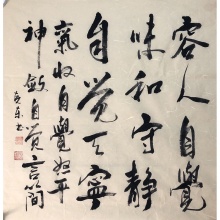 容人自覺
味和守静
自觉心寧
氣收自覺怒平
神斂自觉言簡